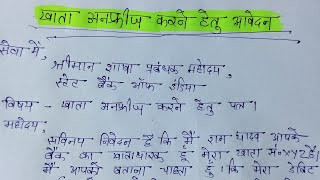 खाता अनफ्रीज करने हेतु आवेदन
सेवा में,
श्रीमान शाखा प्रबंधक महोदय,
स्टेट बैंक ऑफ इंडिया
विषय - खाता अनफ्रीज करने हेतु पत्र।
महोदय,
सविनय निवेदन है कि मैं राम यादव आपके
बैंक का खाताधारक हूं मेरा खाता सं०xyzहै।
मैं आपको बताना चाहता हूं। कि मेरा डेबिट